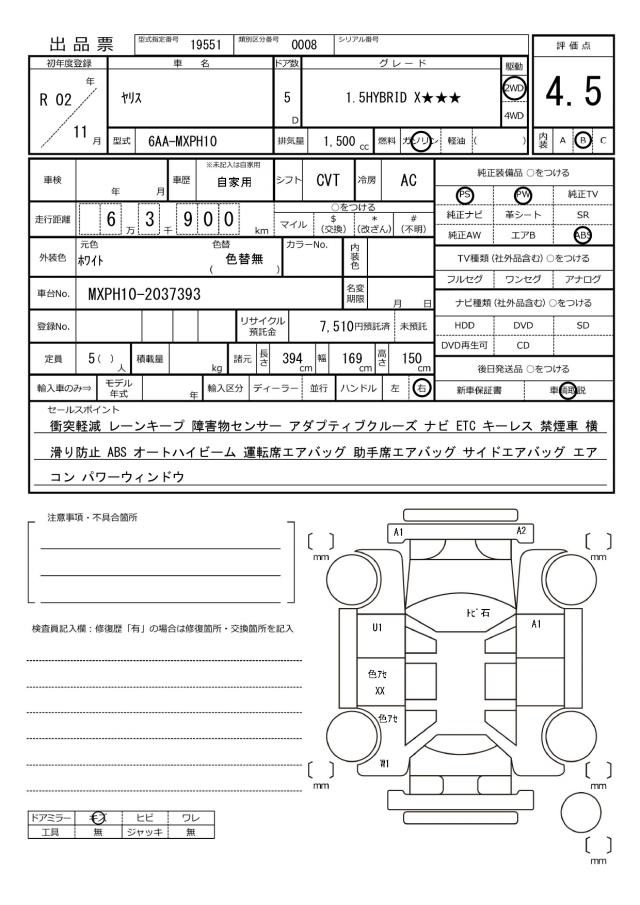 出品票
型式指定番号 19551 類別区分番号 0008 シリアル番号
評価点
4.5
内装 A B C
初年度登録 車名 ドア数 グレード 駆動
R 02 年 11 月
ヤリス
5 D
1.5HYBRID X★★★
2WD
4WD
型式 6AA-MXPH10 排気量 1,500 cc 燃料 ガソリン 軽油 ( )
車検 年 月 車歴 ※未記入は自家用 自家用 シフト CVT 冷房 AC
走行距離 6 万 3 千 9 0 0 km
○をつける
マイル $(交換) *(改ざん) #(不明)
外装色 元色 ホワイト 色替 ( 色替無 ) カラーNo. 内装色
車台No. MXPH10-2037393 名変期限 月 日
登録No. リサイクル預託金 7,510円預託済 未預託
定員 5 ( ) 人 積載量 kg 諸元 長さ 394 cm 幅 169 cm 高さ 150 cm
輸入車のみ⇒ モデル年式 年 輸入区分 ディーラー 並行 ハンドル 左 右
純正装備品 ○をつける
PS PW 純正TV
純正ナビ 革シート SR
純正AW エアB ABS
TV種類 (社外品含む) ○をつける
フルセグ ワンセグ アナログ
ナビ種類 (社外品含む) ○をつける
HDD DVD SD
DVD再生可 CD
後日発送品 ○をつける
新車保証書 車輌取説
セールスポイント
衝突軽減 レーンキープ 障害物センサー アダプティブクルーズ ナビ ETC キーレス 禁煙車 横
滑り防止 ABS オートハイビーム 運転席エアバッグ 助手席エアバッグ サイドエアバッグ エア
コン パワーウィンドウ
注意事項・不具合箇所
検査員記入欄：修復歴「有」の場合は修復箇所・交換箇所を記入
ドアミラー キズ ヒビ ワレ
工具 無 ジャッキ 無
A1 A2
[ ] mm
[ ] mm
トビ石
U1 A1
色アセ
XX
色アセ
W1
[ ] mm
[ ] mm
[ ] mm